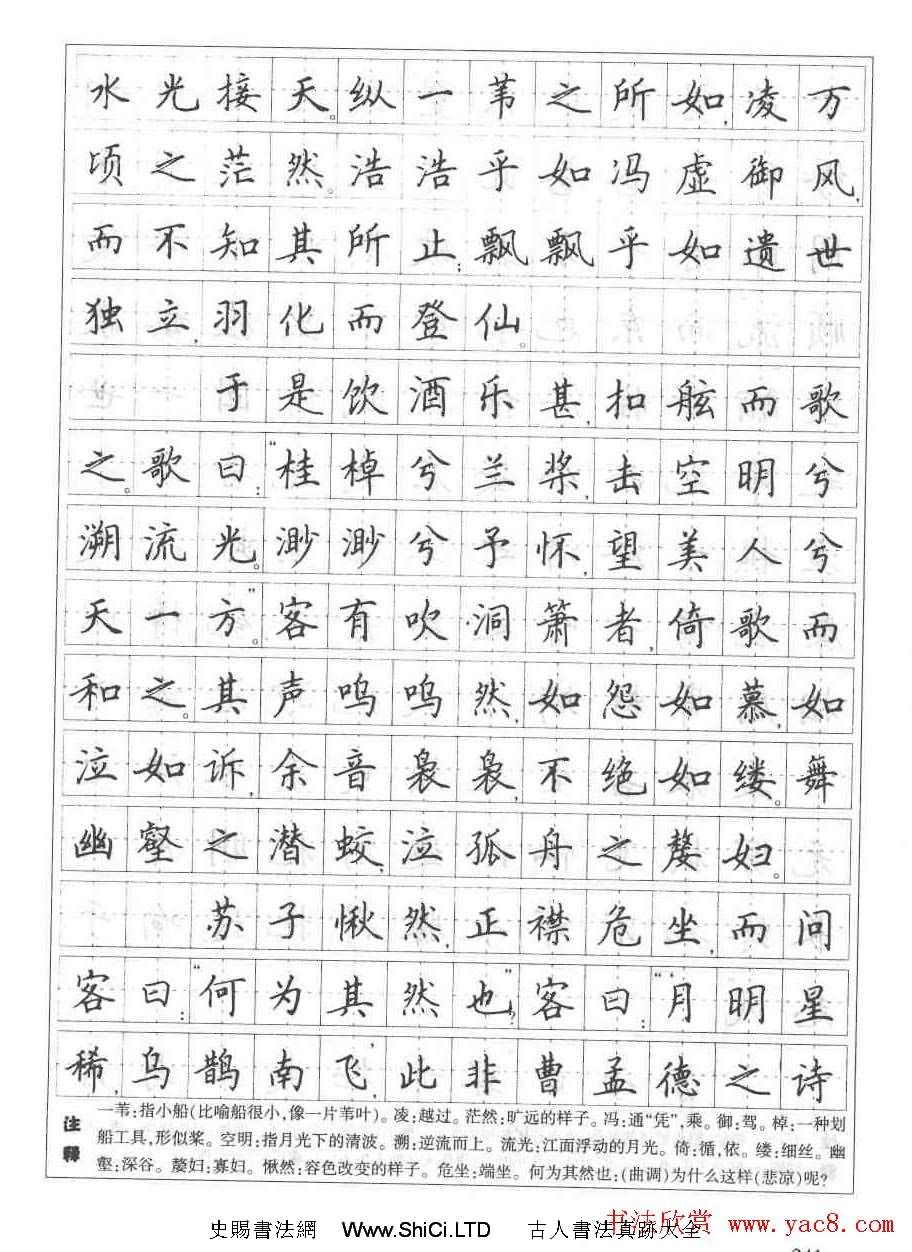 水光接天。纵一苇之所如,凌万
顷之茫然。浩浩乎如冯虚御风,
而不知其所止;飘飘乎如遗世
独立,羽化而登仙。
于是饮酒乐甚,扣舷而歌
之。歌曰:“桂棹兮兰桨,击空明兮
溯流光。渺渺兮予怀,望美人兮
天一方。”客有吹洞箫者,倚歌而
和之。其声呜呜然,如怨如慕,如
泣如诉,余音袅袅,不绝如缕。舞
幽壑之潜蛟,泣孤舟之嫠妇。
苏子愀然,正襟危坐,而问
客曰:“何为其然也?”客曰:“‘月明星
稀,乌鹊南飞’,此非曹孟德之诗
注释
一苇:指小船(比喻船很小,像一片苇叶)。凌:越过。茫然:旷远的样子。冯:通“凭”,乘。御:驾。棹:一种划
船工具,形似桨。空明:指月光下的清波。溯:逆流而上。流光:江面浮动的月光。倚:循,依。缕:细丝。幽
壑:深谷。嫠妇:寡妇。愀然:容色改变的样子。危坐:端坐。何为其然也:(曲调)为什么这样(悲凉)呢?
史賜書法網 Www.ShiCi.LTD 古人書法真跡大全
书法欣赏 www.yac8.com